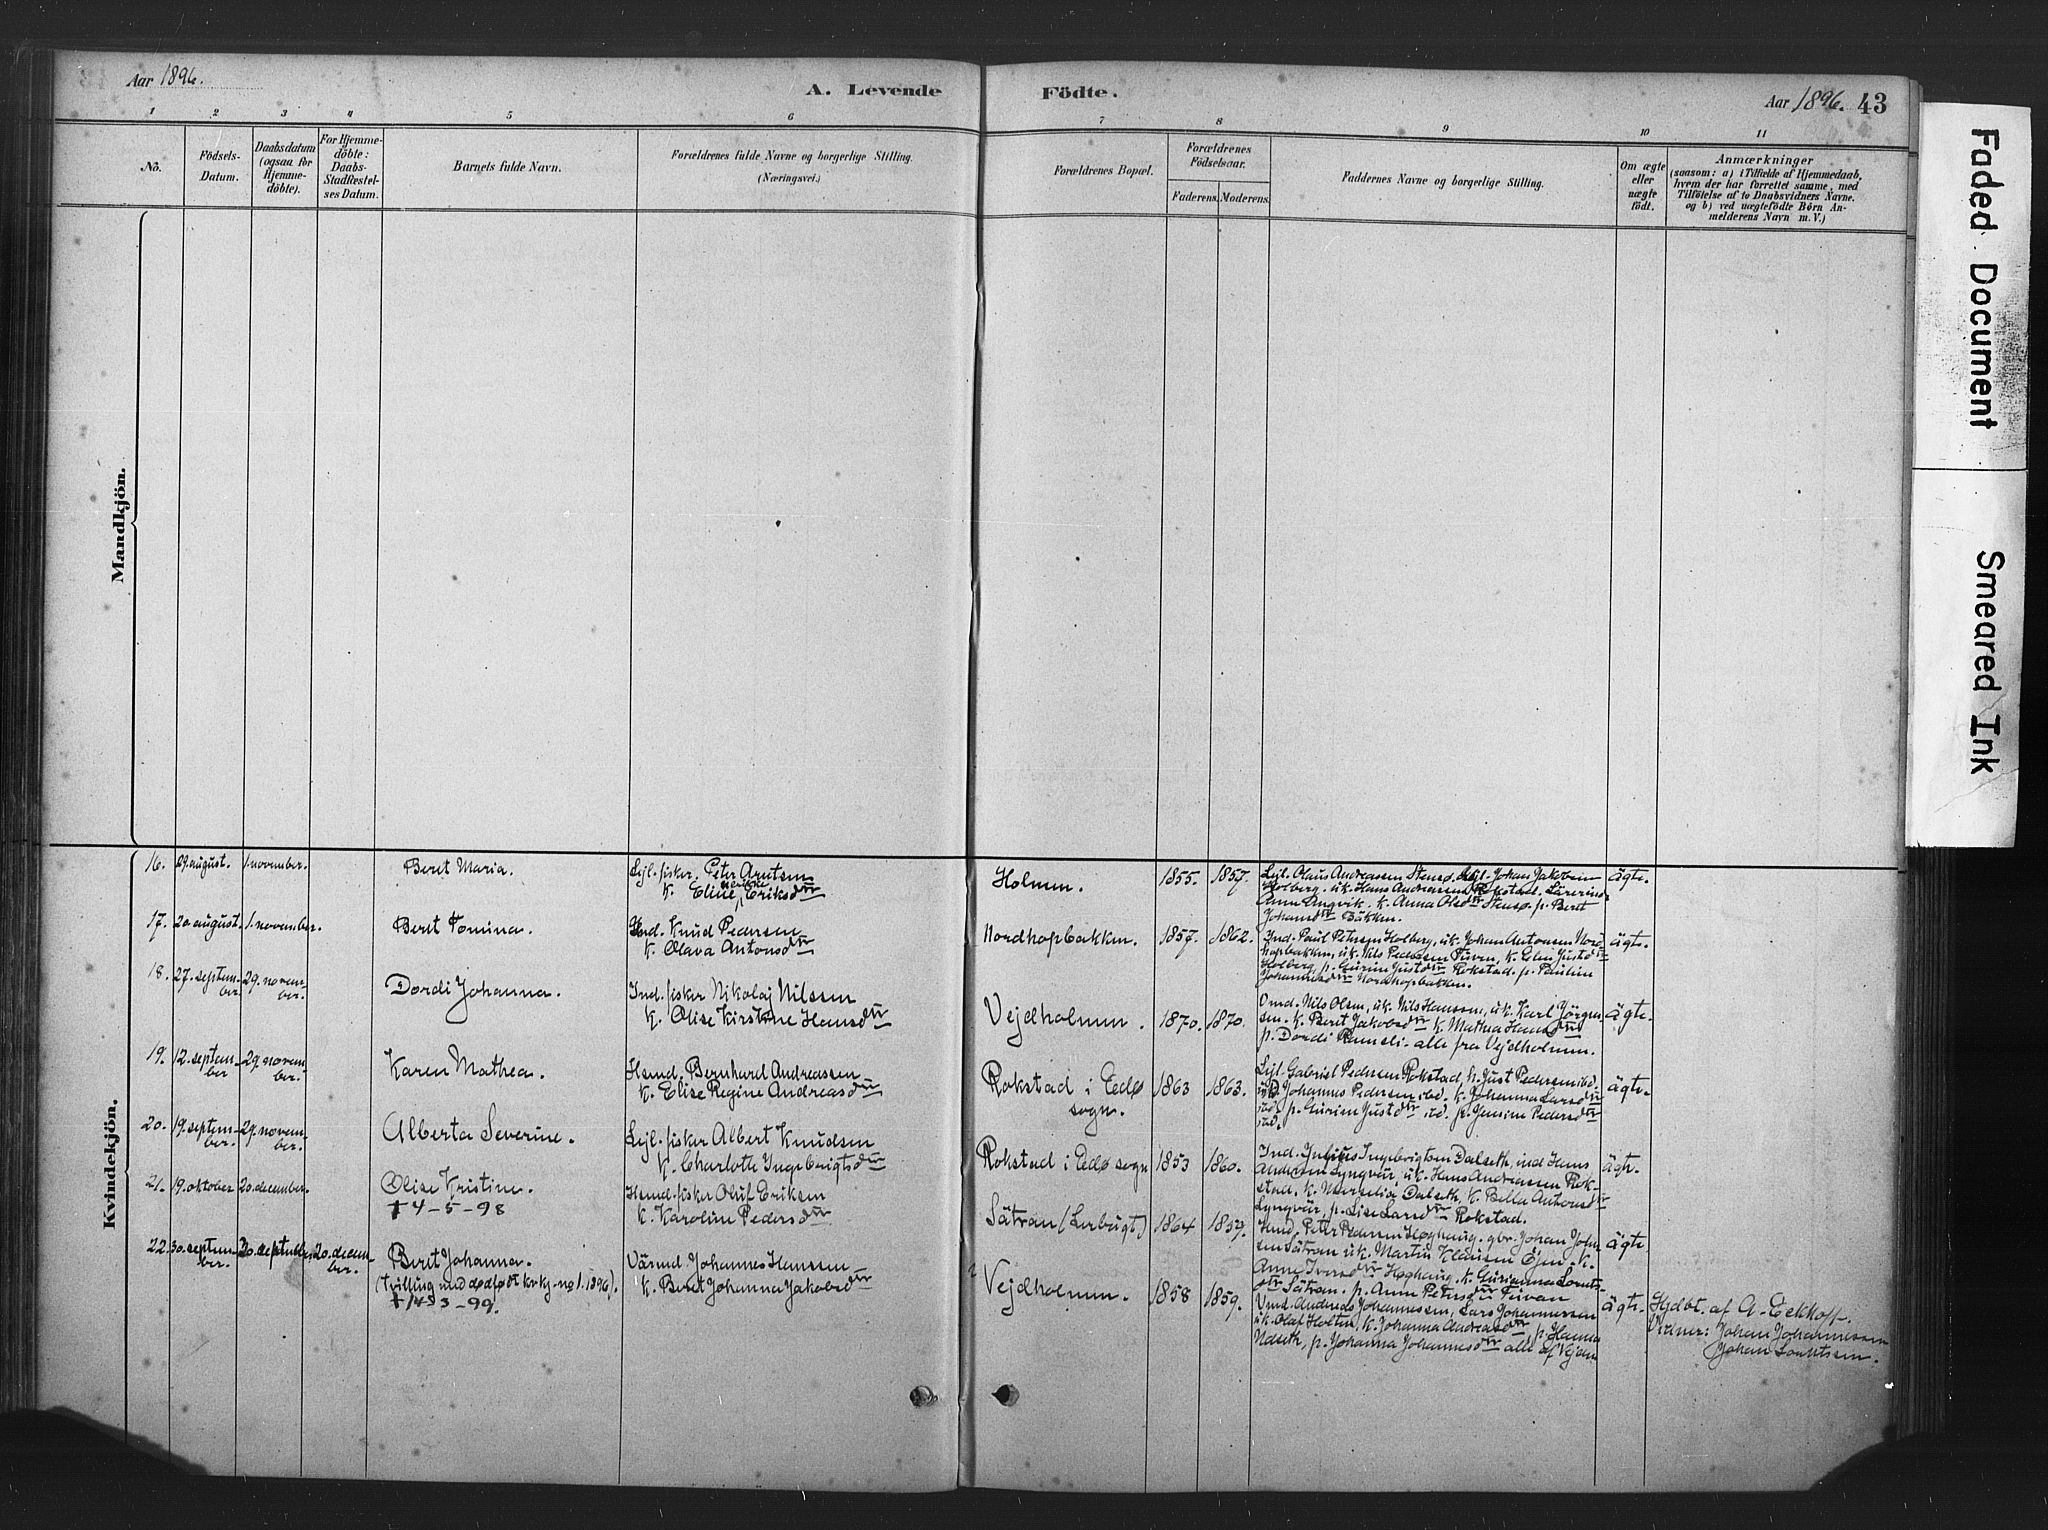 Aar 1896.
A. Levende Födte.
Aar 1896. 43
1 2 3 4 5 6 7 8 9 10 11
No.
Födsels-
Datum.
Daabsdatum
(ogsaa for
Hjemme-
döbte).
For Hjemme-
döbte:
Daabs-
Stadfestel-
ses Datum.
Barnets fulde Navn.
Forældrenes fulde Navne og borgerlige Stilling.
(Næringsvei.)
Forældrenes Bopæl.
Forældrenes
Födselsaar.
Faderens. Moderens.
Faddernes Navne og borgerlige Stilling.
Om ægte
eller
uægte
födt.
Anmærkninger
(saasom: a) i Tilfælde af Hjemmedaab,
hvem der har forrettet samme, med
Tilföielse af to Daabsvidners Navne.
og b) ved uægtefödte Börn An-
melderens Navn m. V.)
Mandkjön.
Kvindekjön.
16. 29. august. 1. november. Berit Maria.
Lejl. fisker. Peter Arntsen
k. Eline Eriksdtr
Holmen. 1855. 1857.
Lejl. Olaus Andreassen Stensø. Lejl. Johan Jakobsen
Holberg. uk. Hans Andreassen Rokstad. Lärerinde
Anne Angvik. k. Anna Olsdtr Stensø. p. Berit
Johansdtr Bakken.
ägte.
17. 20. august. 1. november. Berit Tomina.
Ind. Knud Pedersen
k. Olava Antonsdtr
Nordhopbakken. 1857. 1862.
Ind. Paul Petersen Holberg, uk. Johan Antonsen Nord-
hopbakken, uk. Nils Pedersen Tuven, k. Elen Justdtr
Holberg, p. Gurine Justdtr Rokstad. p. Pauline
Johannesdtr Nordhopbakken.
ägte.
18. 27. septem-
ber 29. novem-
ber. Dordi Johanna.
Ind. fisker Nikolaj Nilssen
k. Olise Kirstine Hansdtr
Vejdholmen. 1870. 1870.
Omd. Nils Olsen, uk. Nils Hanssen, uk. Karl Jörgen-
sen. k. Berit Jakobsdtr k. Mathea Hansdtr
p. Dordi Remsli. alle fra Vejdholmen.
ägte.
19. 12. septem-
ber 29. novem-
ber. Karen Mathea.
Hsmd. Bernhard Andreassen
k. Elise Regine Andreasdtr
Rokstad i Edø
sogn. 1863 1863.
Lejl. Gabriel Pedersen Rokstad, p. Just Pedersen ibd.
Johannes Pedersen ibd. k. Johanna Larsdtr
ibd. p. Gurine Justdtr ibd. p. Jensine Pedersdtr
ibd.
ägte.
20. 19. septem-
ber. 29. novem-
ber. Alberta Severine.
Lejl. fisker Albert Knudsen
k. Charlotte Ingebrigtsdtr
Rokstad i Edø sogn 1853 1860.
Ind. Julius Ingebrigtsen Dalseth, ind Hans
Andersen Lyngvär, uk. Hans Andreassen Rok-
stad, k. Marselia Dalseth, k. Bella Antonsdtr
Lyngvär, p. Lise Larsdtr Rokstad.
ägte.
21. 19. oktober 20. december. Olise Kristine.
† 4-5-98
Hsmd. fisker Oluf Eriksen
k. Karoline Pedersdtr
Sätran (Lerbugt) 1864 1857.
Hsmd. Peter Pedersen Høghaug. gbr. Johan John-
sen Sätran uk. Martin Klausen Ejen. k.
Anne Iversdtr Høghaug. k. Gurianna Lornts-
dtr Sätran. p. Anne Petersdtr Tuvan
ägte.
22. 30. septem-
ber. 30. septbr. 20. decem-
ber. Berit Johanna.
(Tvilling med dødfødt kvkj. no 1. 1896).
† 14/3-99.
Värmd Johannes Hanssen
k. Berit Johanna Jakobsdtr
Vejdholmen. 1858 1859.
Omd. Anderas Johannessen, Lars Johannessen
uk. Olaf Holten, k. Johanna Andreasdtr, p. Hanna
Ndseth, p. Johanna Johannesdtr alle af Vejdm
ägte.
Hjdbt. af A. Eckhoff.
Vidner: Johan Johannessen
Johan Lorntssen.
Faded Document
Smeared Ink